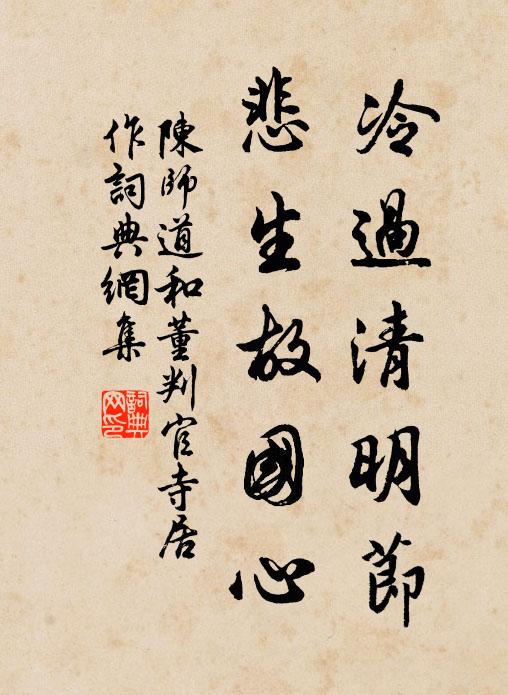 冷過清明節
悲生故國心
陳師道和董判官寺居
作詞典網集
詞典
网印